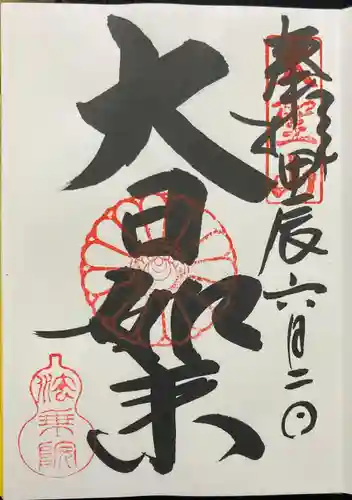 奉拝甲辰六月二日
大日如来
法乗院